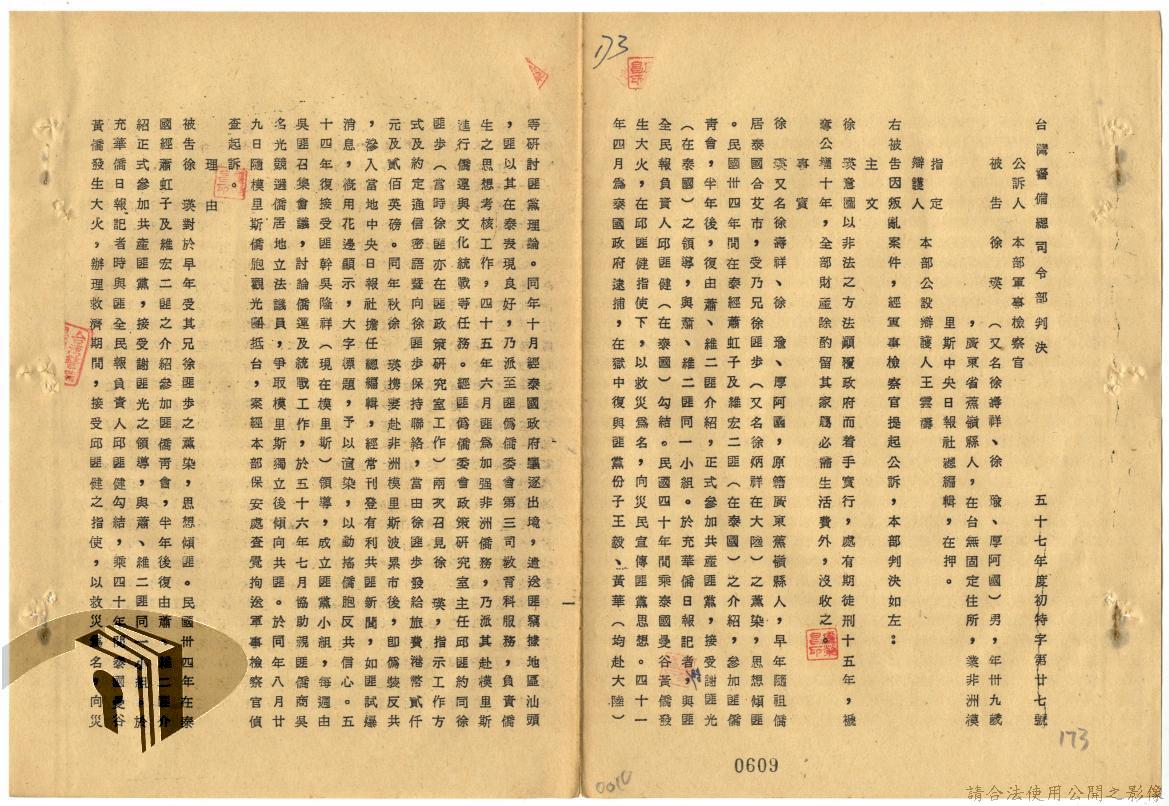 173
台灣警備總司令部判決
五十七年度初特字第廿七號
公訴人　本部軍事檢察官
被　告　徐　瑛　（又名徐壽祥、徐　瑜、厚阿國）男，年卅九歲
，廣東省蕉嶺縣人，在台無固定住所，業非洲模
里斯中央日報社總編輯，在押。
指　定
辯護人　本部公設辯護人王雲濤
右被告因叛亂案件，經軍事檢察官提起公訴，本部判決如左：
主　文
徐　瑛意圖以非法之方法顛覆政府而着手實行，處有期徒刑十五年，褫
奪公權十年，全部財產除酌留其家屬必需生活費外，沒收之。
事　實
徐　瑛又名徐壽祥、徐　瑜、厚阿國，原籍廣東蕉嶺縣人，早年隨祖僑
居泰國合艾市，受乃兄徐匪步（又名徐炳祥在大陸）之薰染，思想傾匪
。民國卅四年間在泰經蕭虹子及維宏二匪（在泰國）之介紹，參加匪僑
青會，半年後，復由蕭、維二匪介紹，正式參加共產匪黨，接受謝匪光
（在泰國）之領導，與蕭、維二匪同一小組。於充華僑日報記者，與匪
全民報負責人邱匪健（在泰國）勾結。民國四十年間乘泰國曼谷黃僑發
生大火，在邱匪健指使下，以救災為名，向災民宣傳匪黨思想。四十一
年四月為泰國政府逮捕，在獄中復與匪黨份子王毅、黃華（均赴大陸）
0609
173
等研討匪黨理論。同年十月經泰國政府議逐出境，遣送匪竊據地區汕頭
，匪以其在泰表現良好，乃派至匪偽僑委會第三司教育科服務，負責僑
生之思想考核工作，四十五年六月匪為加强非洲僑務，乃派其赴模里斯
進行僑運與文化統戰等任務。經匪偽僑委會政策研究室主任邱匪約同徐
匪步（當時徐匪亦在匪政策研究室工作）兩次召見徐　瑛，指示工作方
式及約定通信密語暨向徐匪步保持聯絡，當由徐匪步發給旅費港幣貳仟
元及貳佰英磅。同年秋徐　瑛携妻赴非洲模里斯波累市後，卽偽裝反共
，滲入當地中央日報社擔任總編輯，經常刊登有利共匪新聞，如匪試爆
消息，槪用花邊顯示，大字標題，予以渲染，以動搖僑胞反共信心。五
十四年復接受匪幹吳隆祥（現在模里斯）領導，成立匪黨小組，每週由
吳匪召集會議，討論僑運及統戰工作，於五十六年七月協助親匪僑商吳
名光競選僑居地立法議員，爭取模里斯獨立後傾向共匪。於同年八月廿
九日隨模里斯僑胞觀光團抵台，案經本部保安處查覺拘送軍事檢察官偵
查起訴。
理　由
被告徐　瑛對於早年受其兄徐匪步之薰染，思想傾匪。民國卅四年在泰
國經蕭虹子及維宏二匪之介紹參加匪僑青會，半年後復由蕭、維二匪介
紹正式參加共產匪黨，接受謝匪光之領導，與蕭、維二匪同一小組。於
充華僑日報記者時與匪全民報負責人邱匪健勾結，乘四十年間泰國曼谷
黃僑發生大火，辦理救濟期間，接受邱匪健之指使，以救災為名，向災
一
0010
請合法使用公開之影像